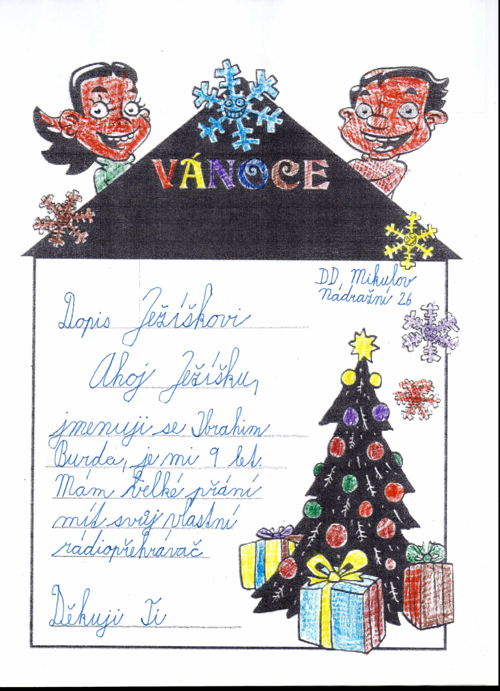 VÁNOCE
DD, Mikulov
Nádražní 26
Dopis Ježíškovi
Ahoj Ježíšku,
jmenuji se Ibrahim
Burda, je mi 9 let.
Mám velké přání
mít svůj vlastní
rádiopřehrávač
Děkuji Ti